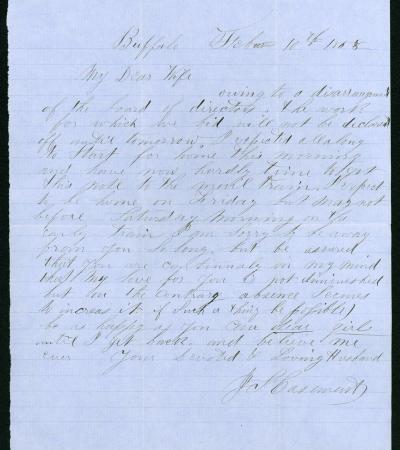 Buffalo Feb 10th 1868
My Dear Wife
owing to a disarrangement
of the board of directors, the work
for which we bid will not be declared
off until tomorrow, I expected all along
to start for home this morning
and have now hardly time to get
this note to the mail train. I expect
to be home on Friday but may not
before Saturday morning on the
early train I am sorry to be away
from you so long, but be assured
that you are continualy on my mind
that my love for you is not diminished
but on the contrary absence seemes
to increas it if such a thing be posible
be as happy as you can dear girl
until I get back and believe me
ever Your Devoted & Loving Husband
Jas Casement